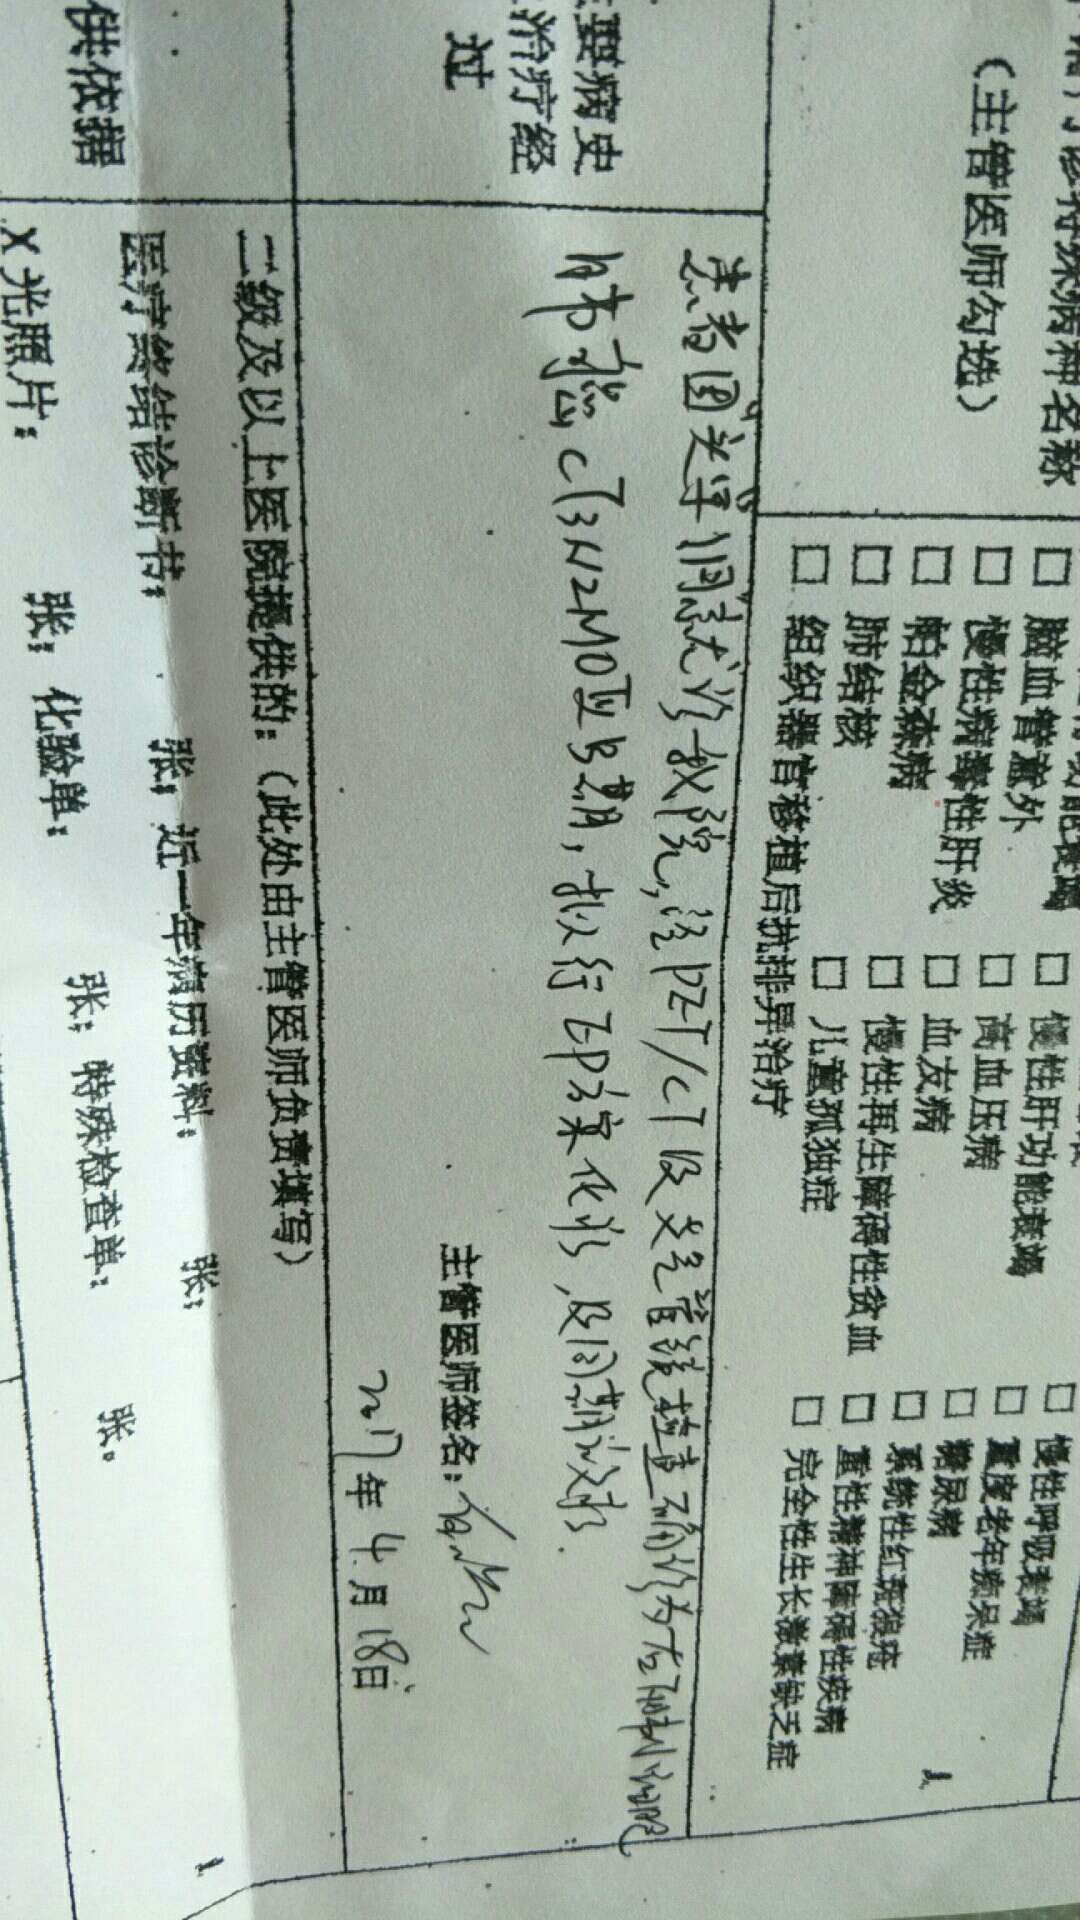 门诊特殊病种名称
（主管医师勾选）
□ 脑血管意外 □ 慢性肝功能衰竭 □ 慢性呼吸衰竭
□ 慢性病毒性肝炎 □ 高血压病 □ 重度老年痴呆症
□ 帕金森病 □ 血友病 □ 糖尿病
□ 肺结核 □ 慢性再生障碍性贫血 □ 系统性红斑狼疮
□ 组织器官移植后抗排异治疗 □ 儿童孤独症 □ 重性精神障碍性疾病
□ 完全性生长激素缺乏症
主要病史
治疗经
过
患者因"咳嗽"就诊我院，经PET/CT及支气管镜检查确诊为右肺小细胞
肺癌 cT3N2M0 期，拟行EP方案化疗，及同期放疗.
主管医师签名：
2017年4月18日
供依据
二级及以上医院提供的：（此处由主管医师负责填写）
医疗终结诊断书： 张；近一年病历资料： 张；
X光照片： 张；化验单： 张；特殊检查单： 张。